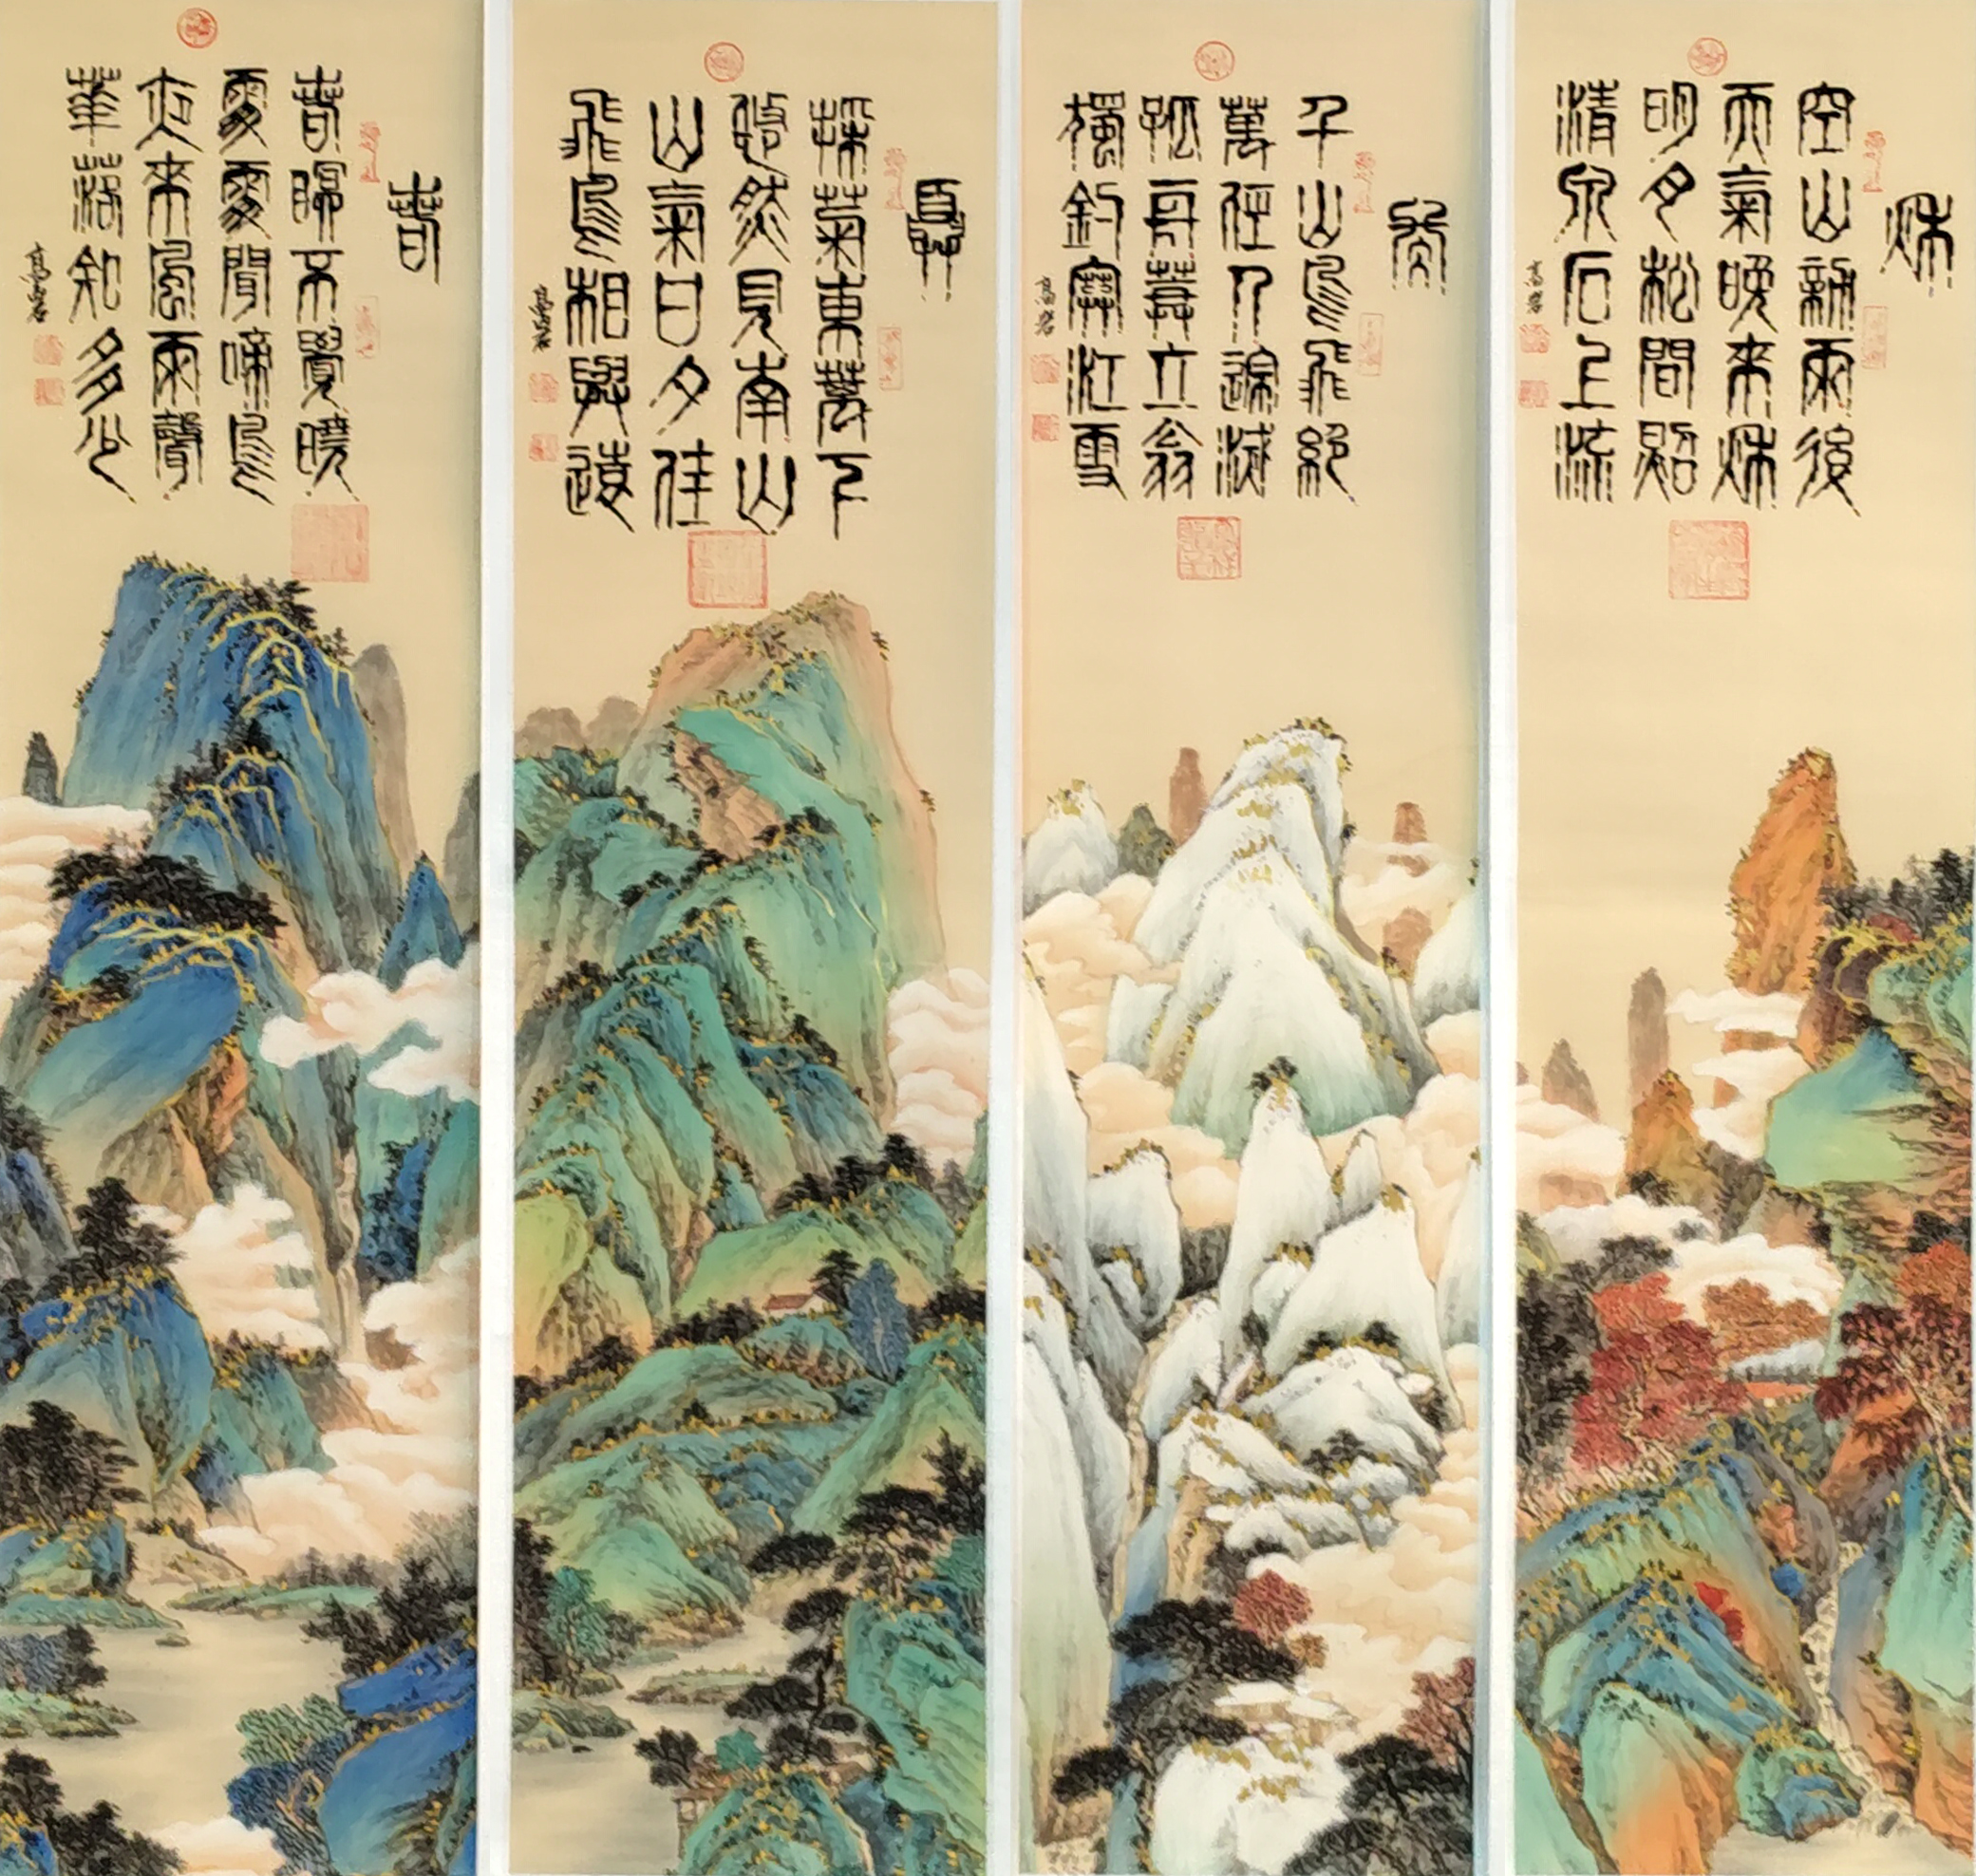 春
春眠不覺曉
處處聞啼鳥
夜來風雨聲
華落知多少
夏
採菊東籬下
悠然見南山
山氣日夕佳
飛鳥相與還
冬
千山鳥飛絕
萬徑人蹤滅
孤舟蓑笠翁
獨釣寒江雪
秋
空山新雨後
天氣晚來秋
明月松間照
清泉石上流